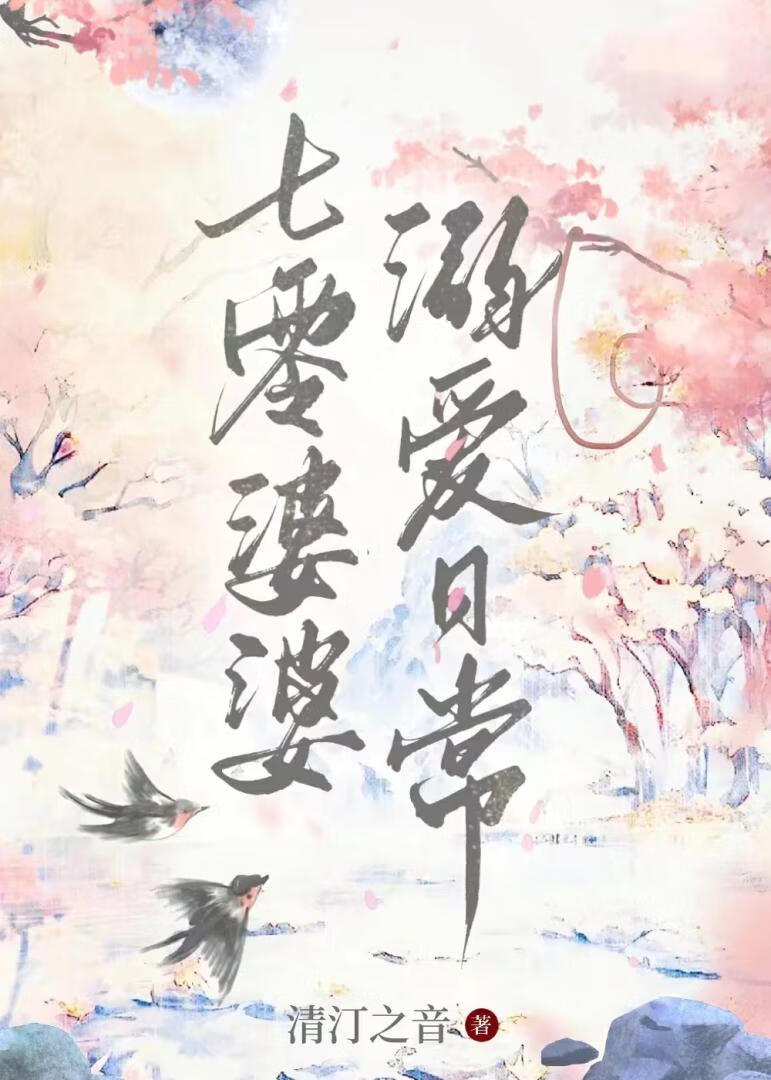 七零婆婆
溺爱日常
清汀之音 著